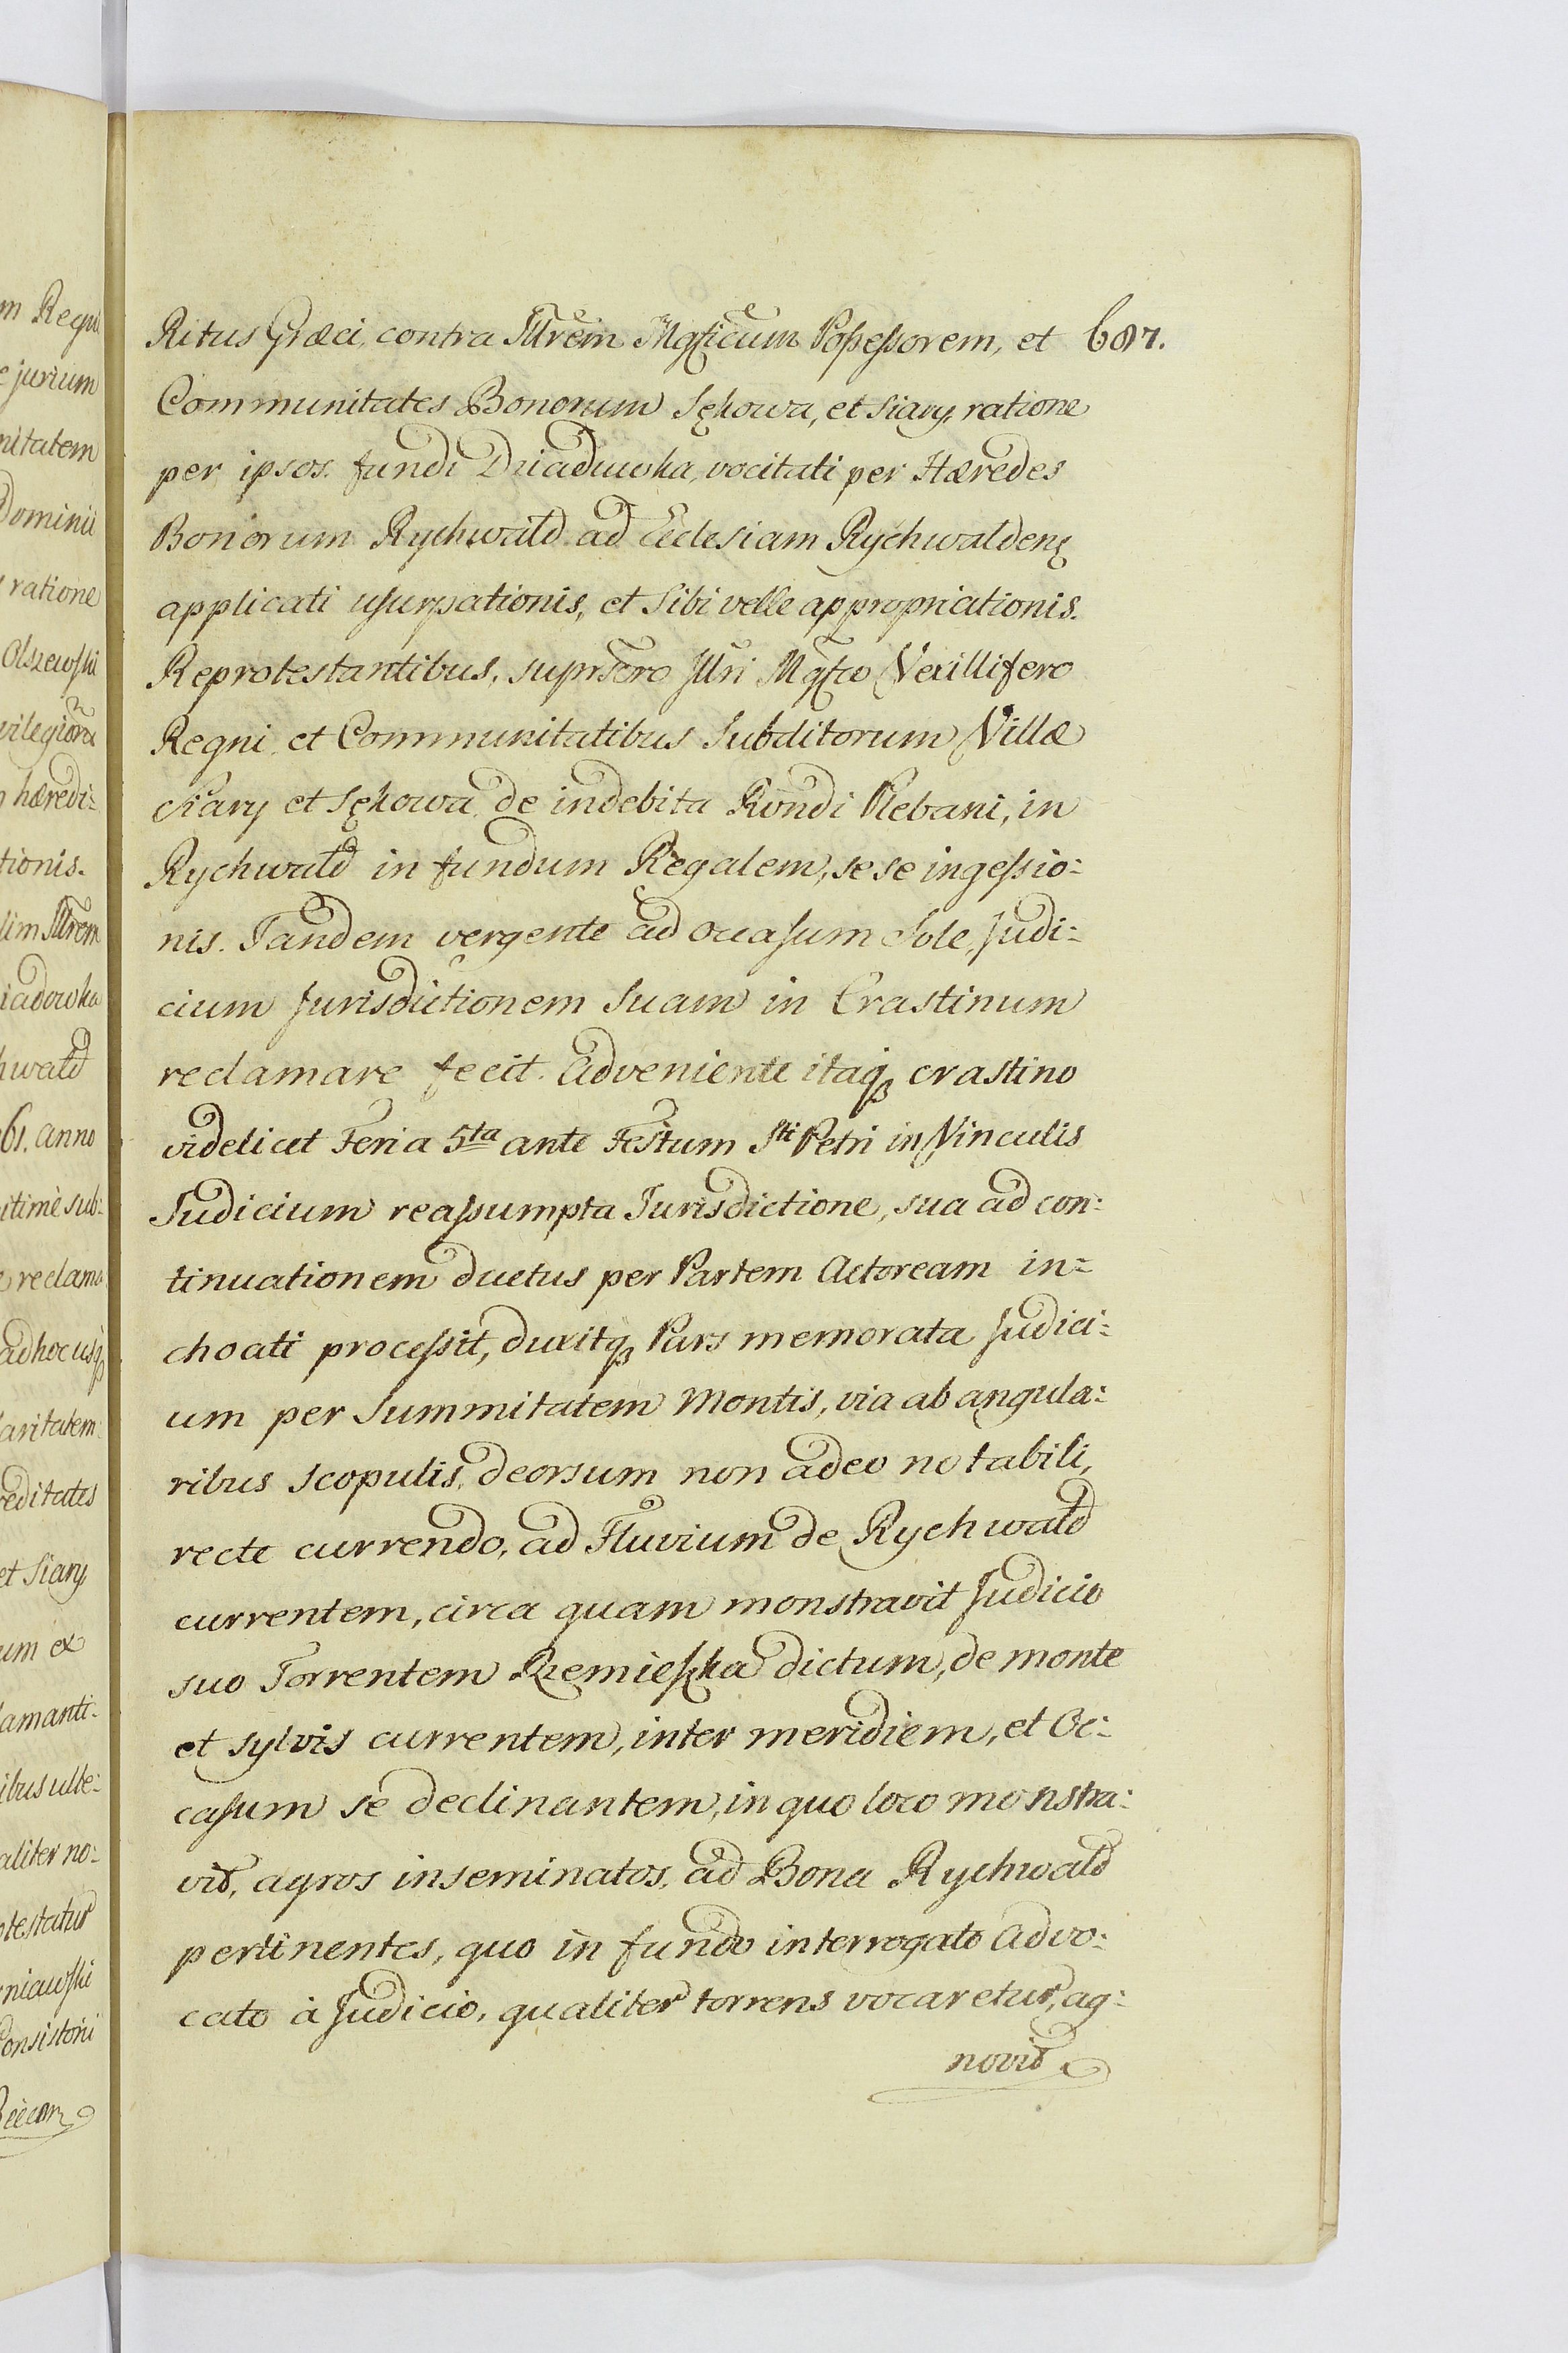 Ritus Græci, contra Illrem Mgficum Possessorem, et 687.
Communitates Bonorum Sękowa, et Siary, ratione
per ipsos fundi Dziadowka, vocitati per Hæredes
Bonorum Rychwald ad Ecclesiam Rychwaldens
applicati usurpationis, et Sibi velle appropriationis.
Reprotestantibus, suprscro Illri Mgfco Vexillifero
Regni, et Communitatibus Subditorum Villæ
Siary et Sękowa, de indebita Rvndi Plebani, in
Rychwald in fundum Regalem, se se ingessio:
nis. Tandem vergente ad occasum Sole, Judi:
cium Jurisdictionem Suam in Crastinum
reclamare fecit. Adveniente itaq crastino
videlicet Feria 5ta ante Festum Sti Petri in Vinculis
Judicium reassumpta Jurisdictione, sua ad con:
tinuationem ductus per Partem Actoream in=
choati processit, duxitq Pars memorata Judici:
um per Summitatem Montis, via ab angula:
ribus scopulis, deorsum non adeo notabili,
recte currendo, ad Fluvium de Rychwald
currentem, circa quam monstravit Judicio
suo Torrentem dictum, de monte
et sylvis currentem, inter meridiem, et Oc:
casum se declinantem, in quo loco monstra:
vit, agros inseminatos, ad Bona Rychwald
pertinentes, quo in fundo interrogato Advo:
cato à Judicio, qualiter torrens vocaretur, ag:
novit
m Regni
e jurium
nitatem
Dominii
ratione
Olszewski
vilegiorū
hæredi=
tionis.
lim Illrem
iadowka
hwald
61. anno
itimè sub:
reclama
adhocusq
aritatem
reditates
et Siary
um ex
lamanti:
ibus ulte:
aliter no:
otestatur
niawski
Consistorii